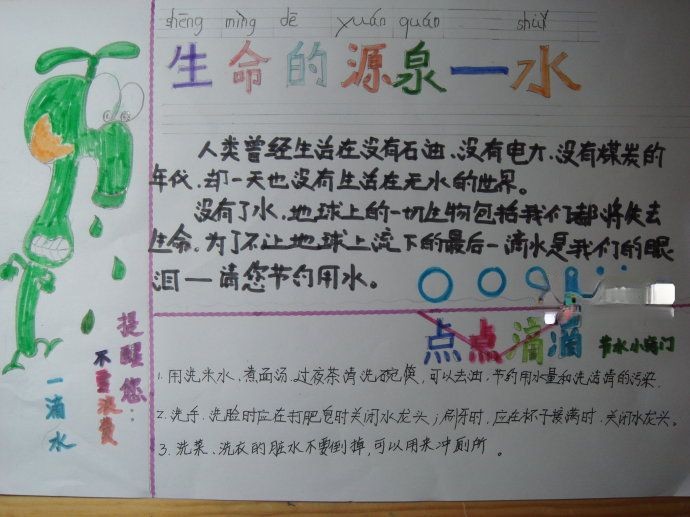 shēng mìng dē yuán quán shuǐ
生命的源泉一水
人类曾经生活在没有石油、没有电力、没有煤炭的
年代，却一天也没有生活在无水的世界。
没有了水，地球上的一切生物包括我们都将失去
生命，为了不让地球上流下的最后一滴水是我们的眼
泪—请您节约用水。
提醒您：
不要浪费
一滴水
点点滴滴 节水小窍门
1. 用洗米水、煮面汤、过夜茶清洗碗筷，可以去油、节约用水量和洗洁精的污染。
2. 洗手、洗脸时应在打肥皂时关闭水龙头；刷牙时，应在杯子接满时，关闭水龙头。
3. 洗菜、洗衣的脏水不要倒掉，可以用来冲厕所。